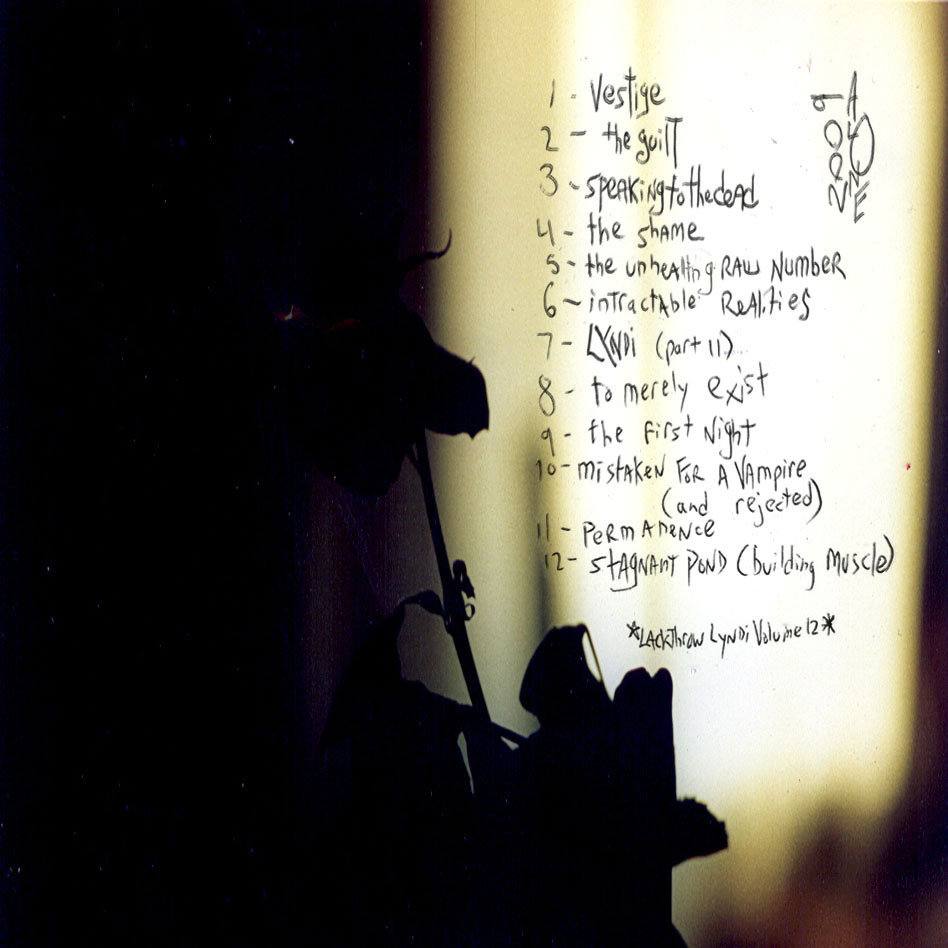 1 - Vestige
2 - the guilt
3 - speaking to the dead
4 - the shAme
5 - the unheAling RAW NumbeR
6 - intractAble ReAlities
7 - LYNDi (part 11)
8 - to merely exist
9 - the first Night
10 - mistAkeN FoR A VAmpire
(and rejected)
11 - PeRmAneNce
12 - STAgNAnT PoND (building Muscle)
*LAckThrow LyNDi Volume 12*
2009
ALONE